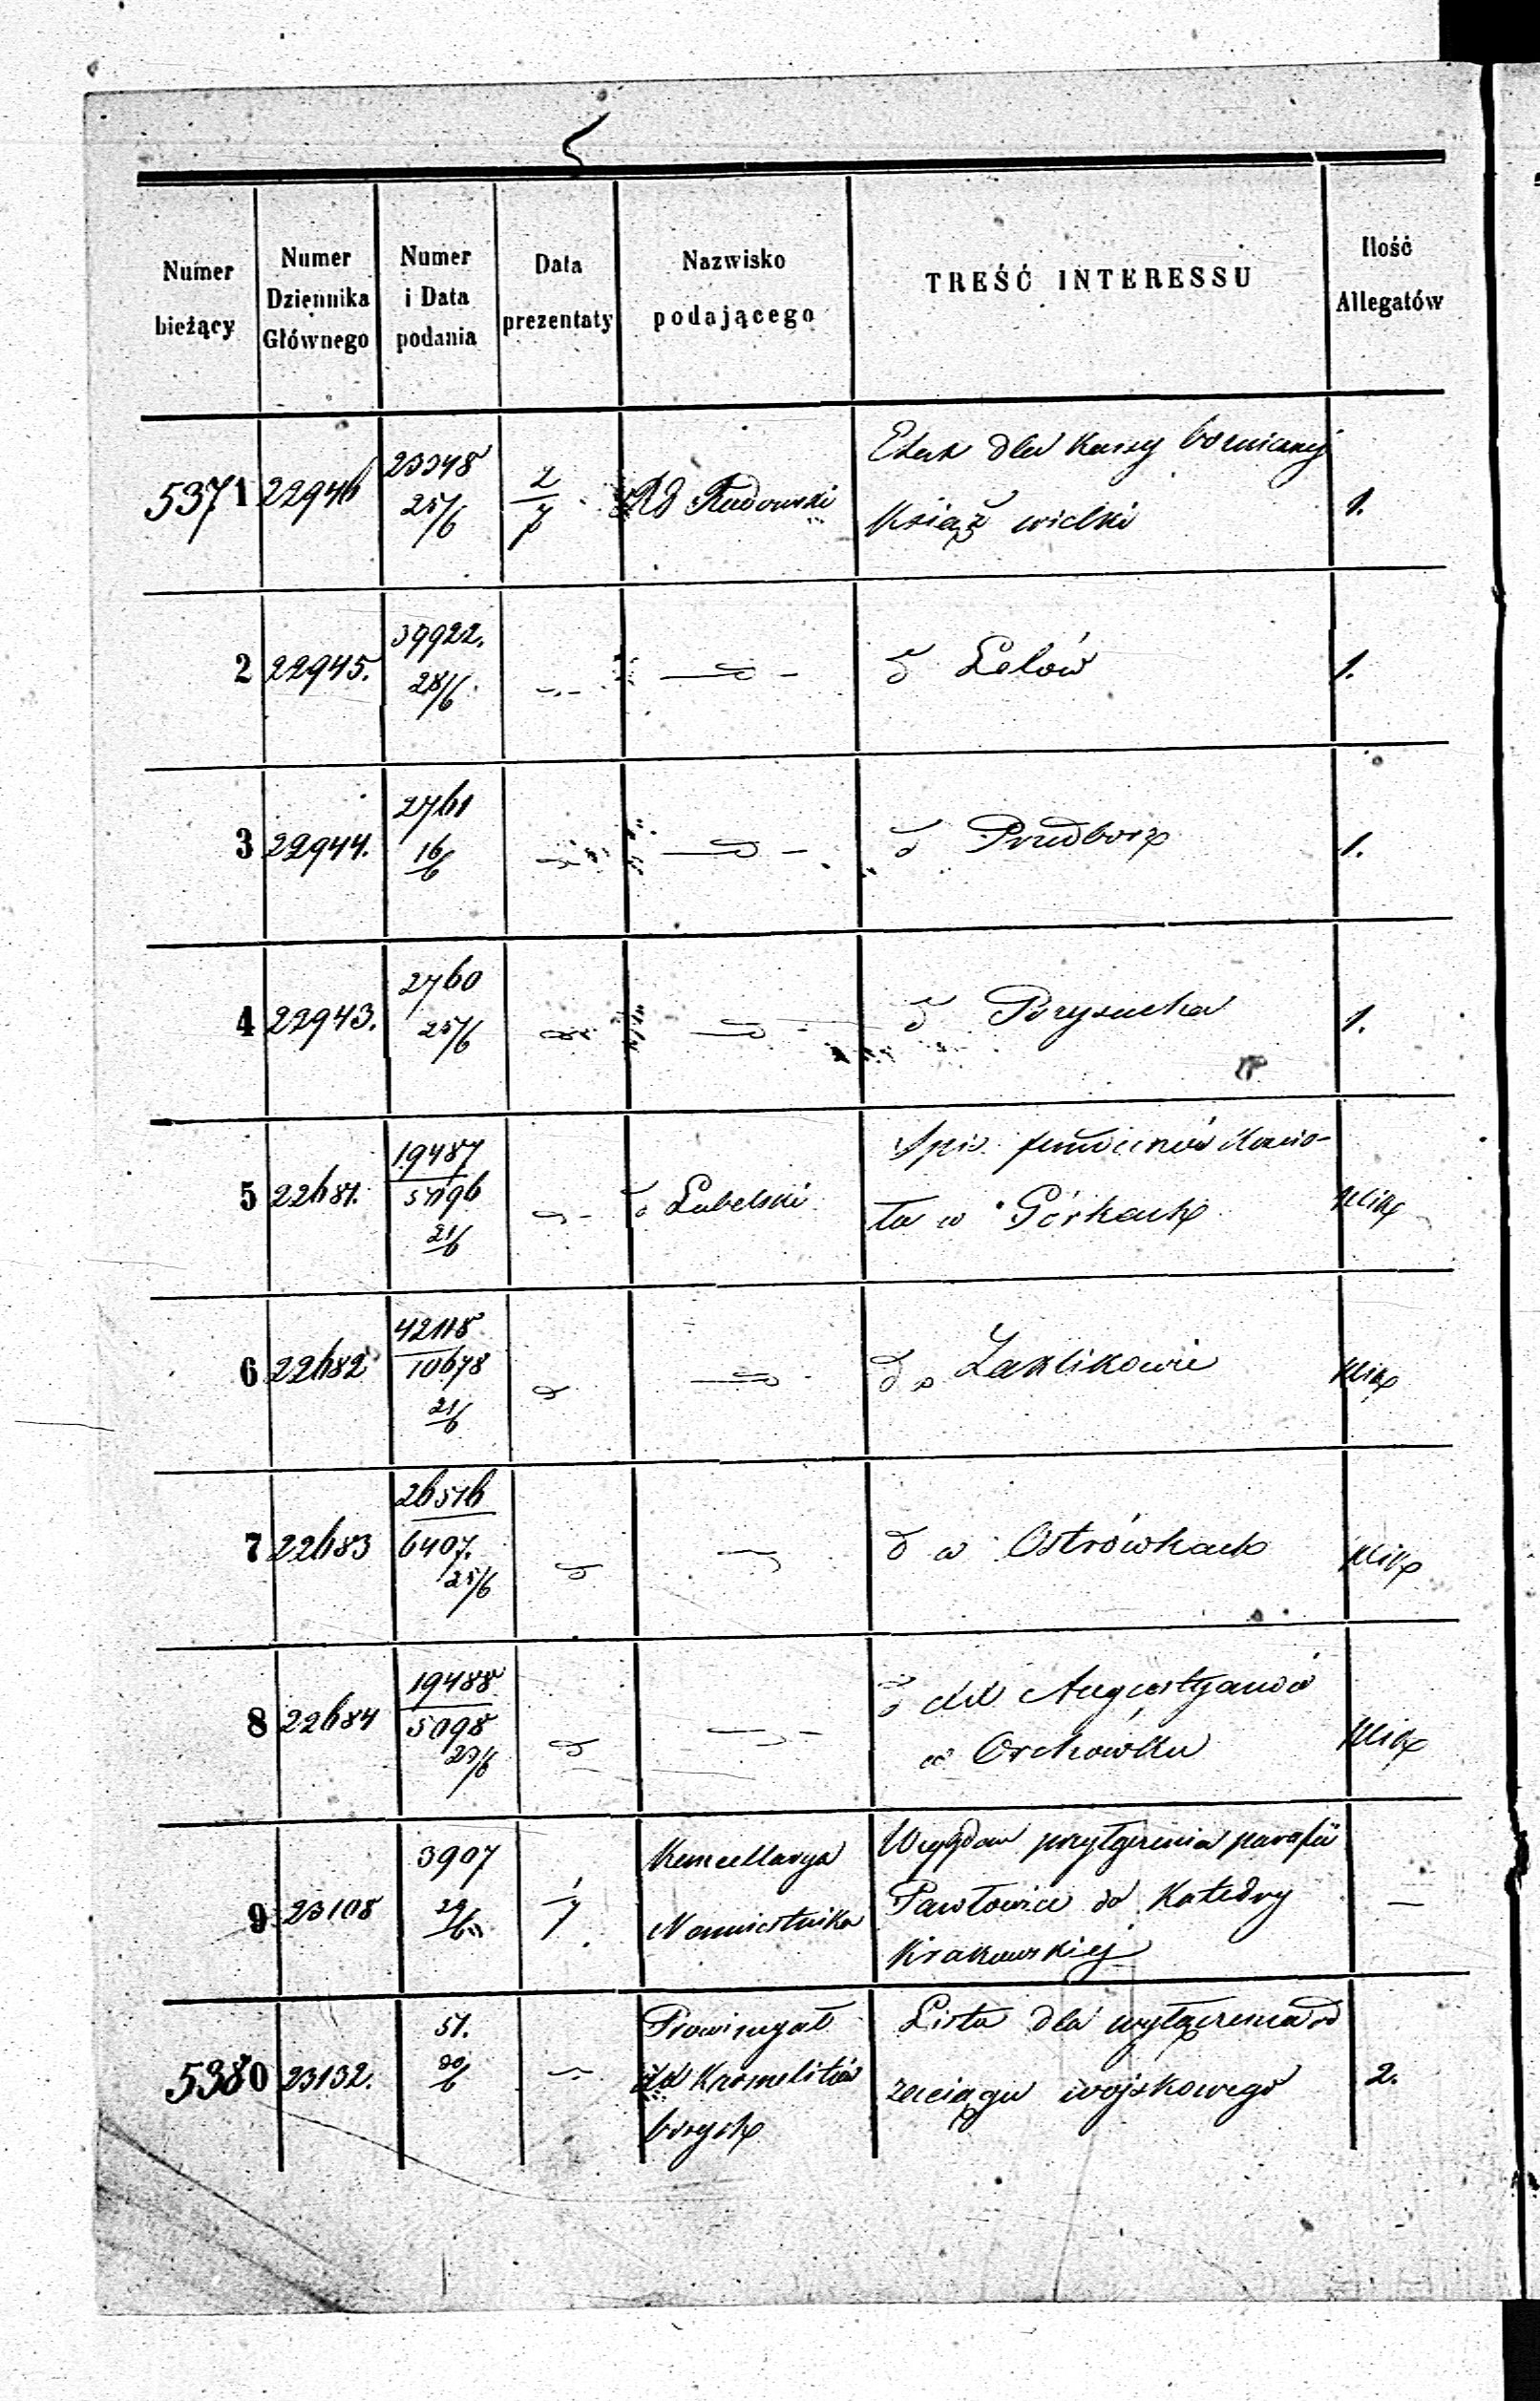 Numer bieżący | Numer Dziennika Głównego | Numer i Data podania | Data prezentaty | Nazwisko podającego | TREŚĆ INTERESSU | Ilość Allegatów
5371 | 22946 | 23348 25/6 | 2/7 | Rd Radomski | Etat dla Kassy bożniczej
Książ wielki | 1.
2 | 22945. | 39922. 28/6 | d Lelów | 1.
3 | 22944. | 2761 16/6 | d Przedborz | 1.
4 | 22943. | 2760 25/6 | d Przysucha | 1.
5 | 22681. | 19487 21/6 | d Lubelski | Spis funduszów Kościo-
ła w Górkach | plik
6 | 22682 | 42118 10678 21/6 | do Zaklikowie | plik
7 | 22683 | 26516 6407. 25/6 | d w Ostrówkach | plik
8 | 22684 | 19488 5098 23/6 | d XX Augustyanów
w Orchówku | plik
9 | 23108 | 3907 29/6 | 1/7 | Kancellarya
Namiestnika | Względem przyłączenia parafii
Pawłowice do Katedry
Krakowskiej | —
5380 | 23132. | 51. 30/6 | Prowincyał
XX Karmelitów
bosych | Lista dla wyłączenia od
zaciągu wojskowego | 2.